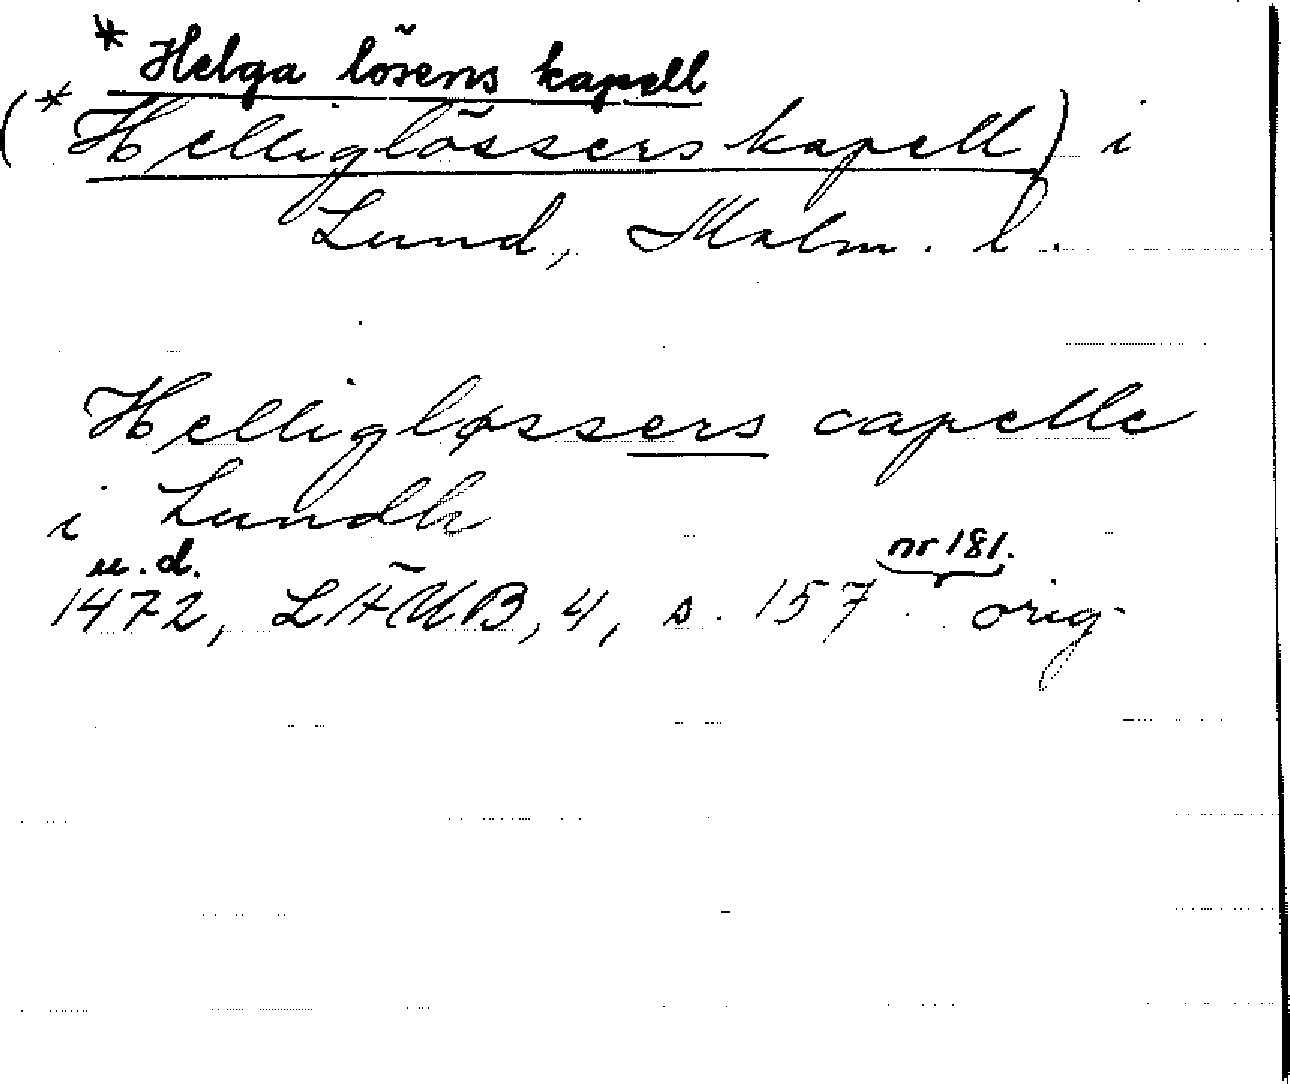 * Helga lösens kapell
(* Helliglössers kapell) i
Lund, Malm. l.
Helligløssers capelle
i Lundh
u. d. nr 181.
1472, LÄUB, 4, s. 157 orig